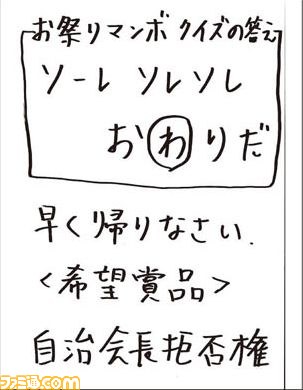 お祭りマンボ クイズの答え
ソーレ ソレソレ
おわりだ
早く帰りなさい.
<希望賞品>
自治会長拒否権
ファミ通.com